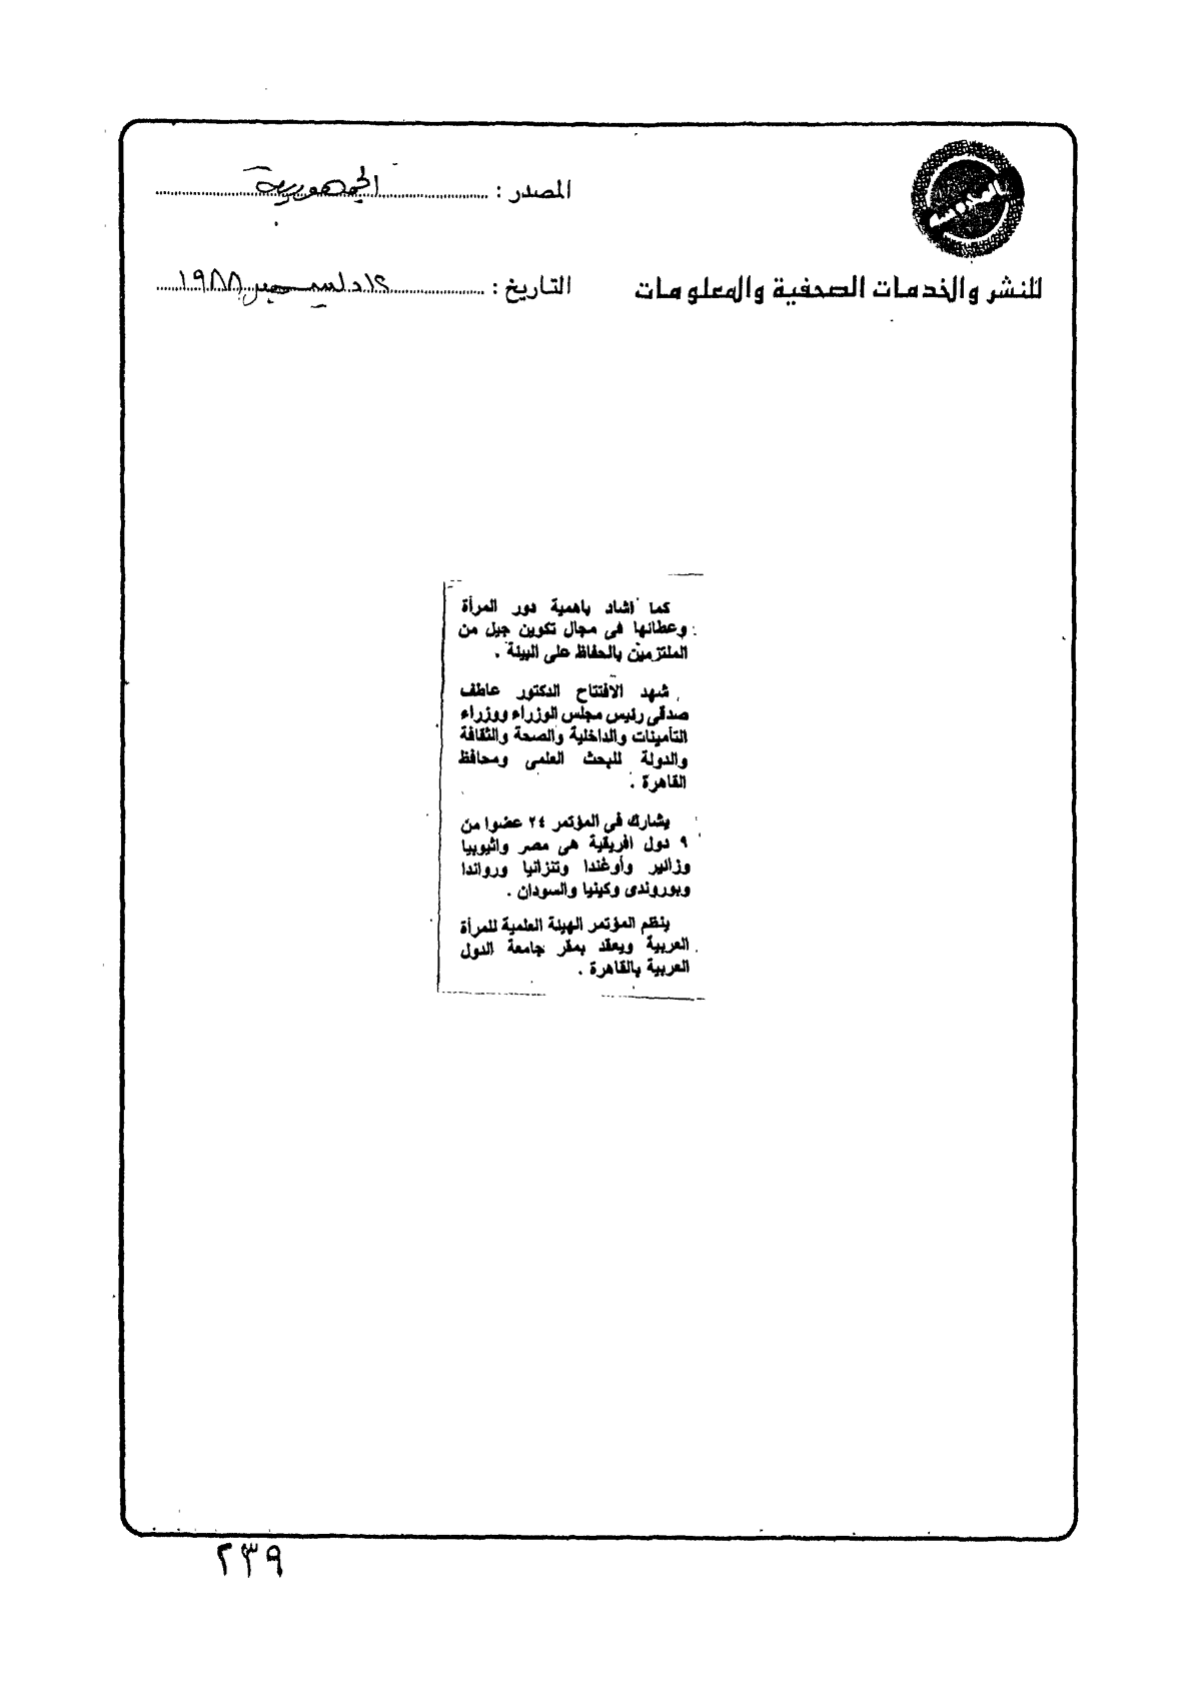 المصدر : الجمهورية
للنشر والخدمات الصحفية والمعلومات
التاريخ : ١٢ ديسمبر ١٩٨٨
كما اشاد باهمية دور المرأة
وعطائها فى مجال تكوين جيل من
الملتزمين بالحفاظ على البيئة .
شهد الافتتاح الدكتور عاطف
صدقى رئيس مجلس الوزراء ووزراء
التأمينات والداخلية والصحة والثقافة
والدولة للبحث العلمى ومحافظ
القاهرة .
يشارك فى المؤتمر ٢٤ عضوا من
٩ دول افريقية هى مصر واثيوبيا
وزائير وأوغندا وتنزانيا ورواندا
وبوروندى وكينيا والسودان .
ينظم المؤتمر الهيئة العلمية للمرأة
العربية ويعقد بمقر جامعة الدول
العربية بالقاهرة .
٢٣٩